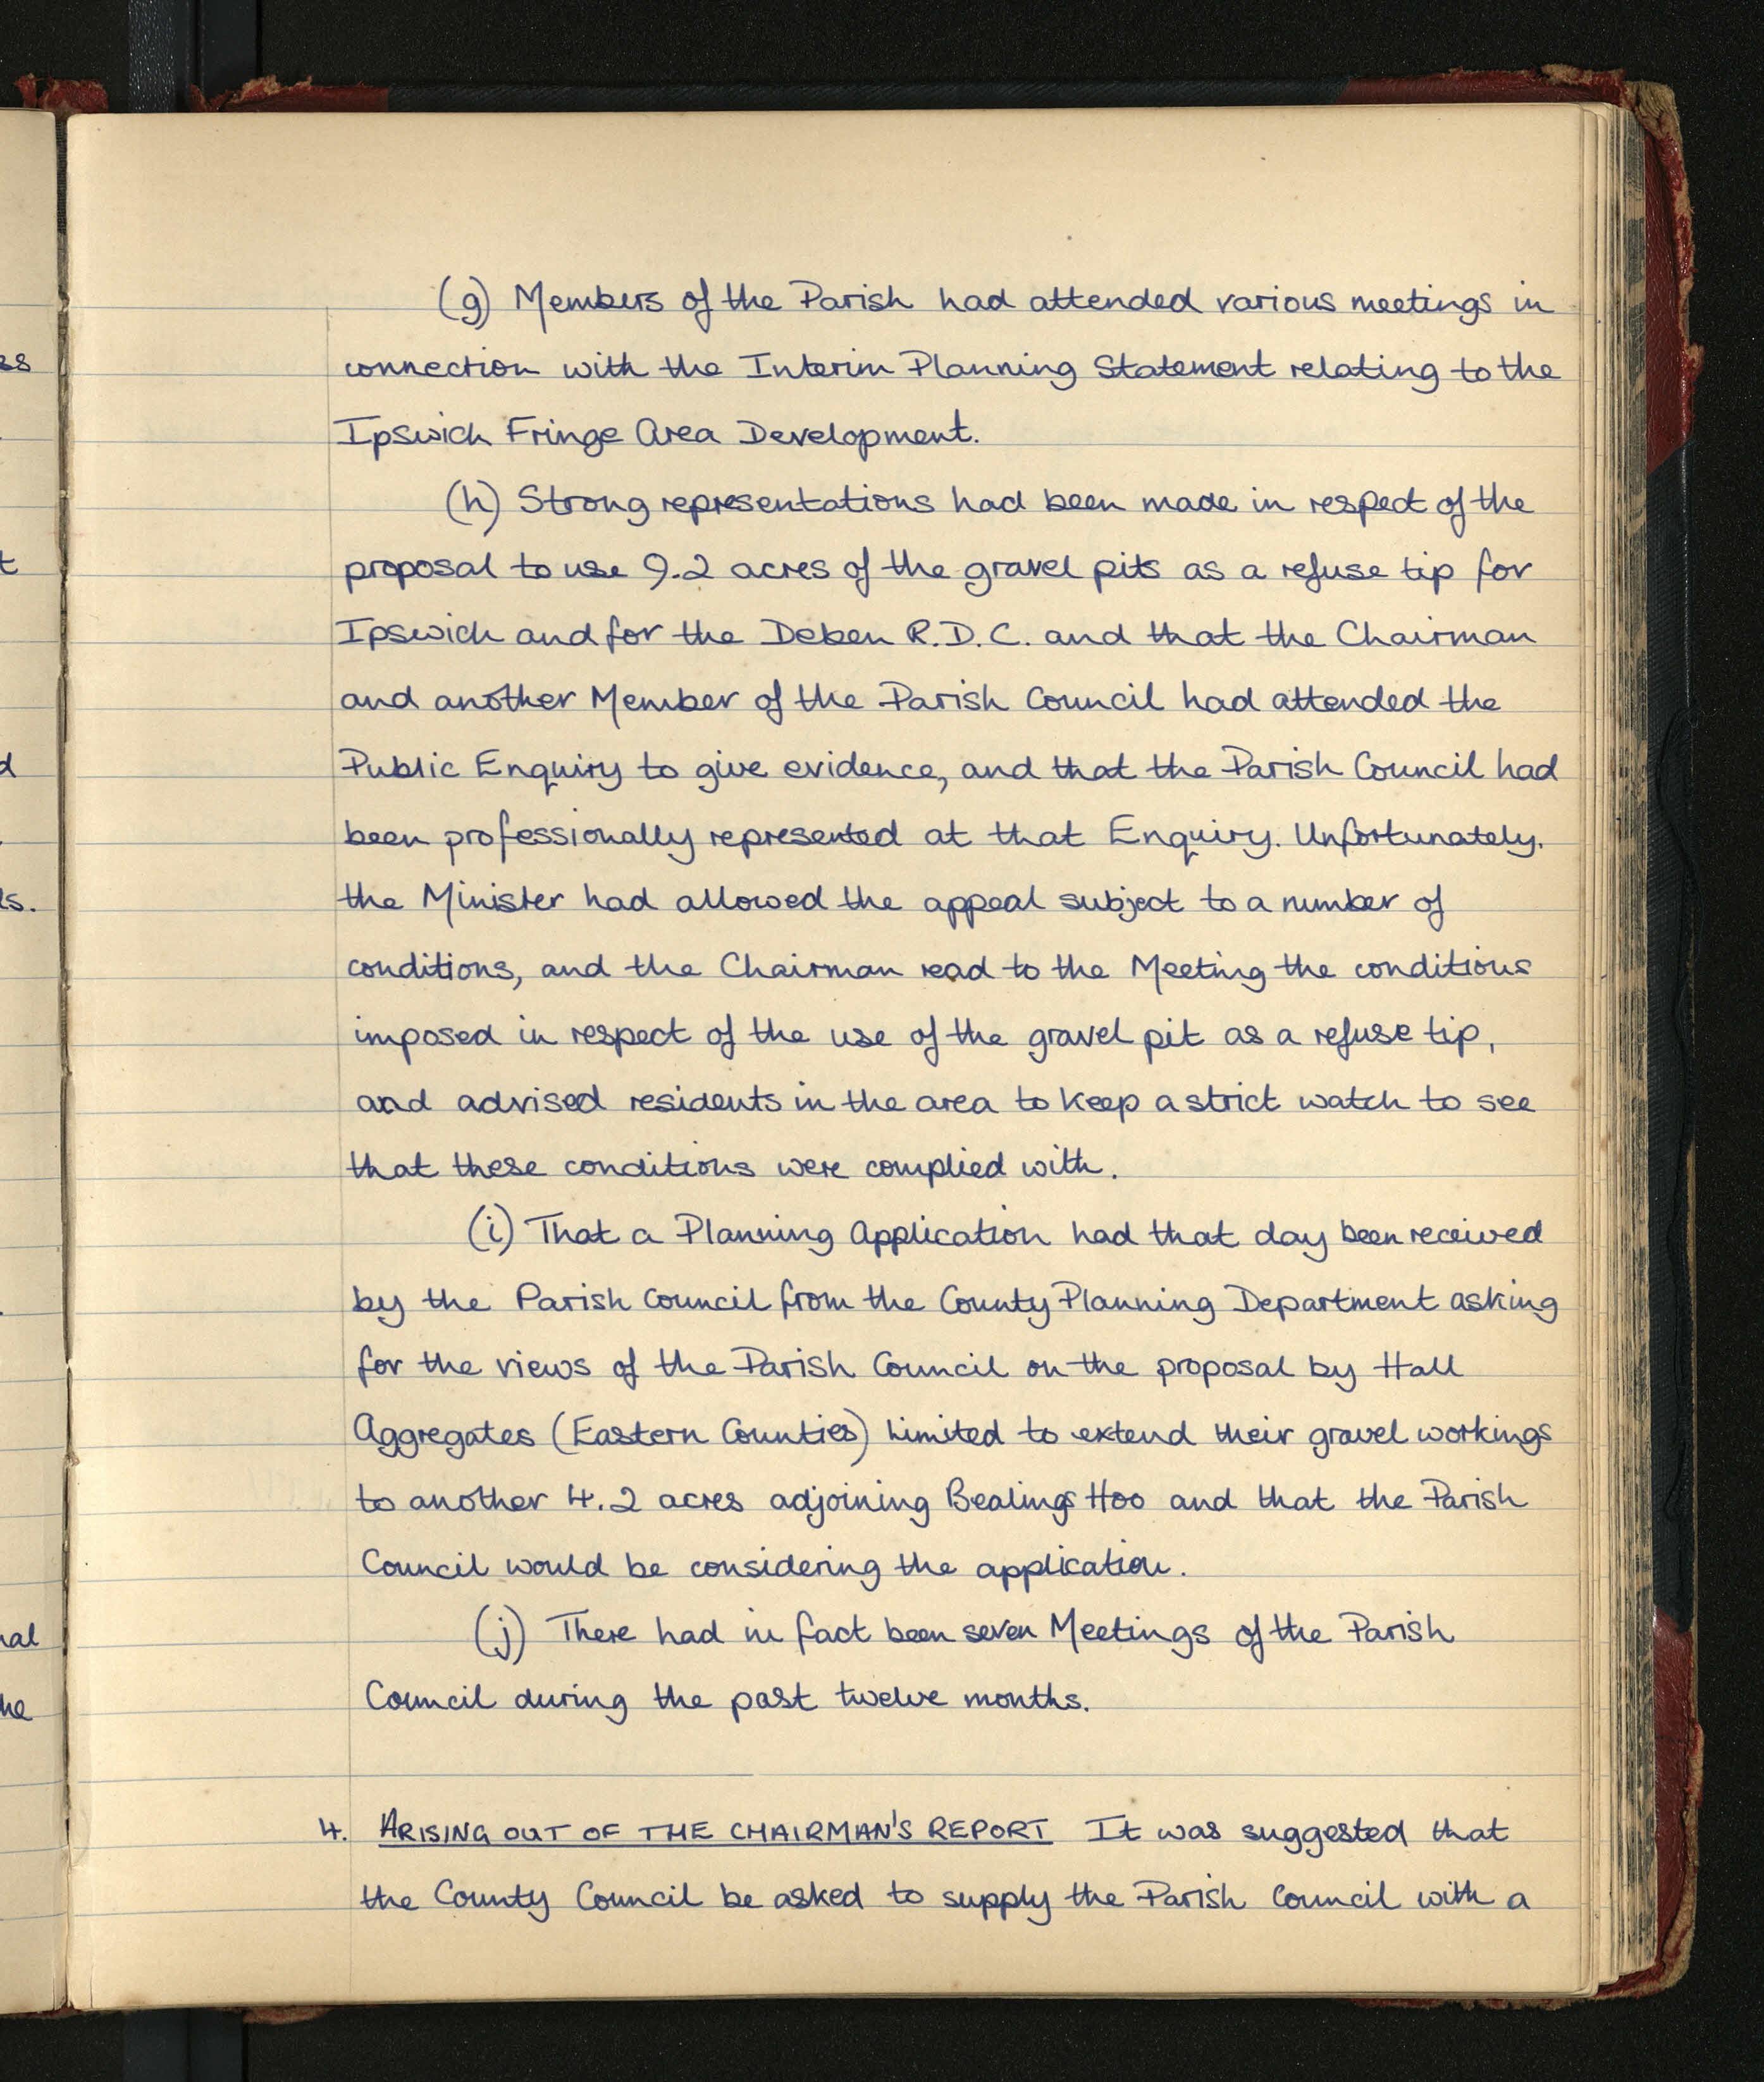 (g) Members of the Parish had attended various meetings in
connection with the Interim Planning Statement relating to the
Ipswich Fringe Area Development.
(h) Strong representations had been made in respect of the
proposal to use 9.2 acres of the gravel pits as a refuse tip for
Ipswich and for the Deben R.D.C. and that the Chairman
and another Member of the Parish Council had attended the
Public Enquiry to give evidence, and that the Parish Council had
been professionally represented at that Enquiry. Unfortunately,
the Minister had allowed the appeal subject to a number of
conditions, and the Chairman read to the Meeting the conditions
imposed in respect of the use of the gravel pit as a refuse tip,
and advised residents in the area to keep a strict watch to see
that these conditions were complied with.
(i) That a Planning Application had that day been received
by the Parish Council from the County Planning Department asking
for the views of the Parish Council on the proposal by Hall
Aggregates (Eastern Counties) Limited to extend their gravel workings
to another 4.2 acres adjoining Bealings Hoo and that the Parish
Council would be considering the application.
(j) There had in fact been seven Meetings of the Parish
Council during the past twelve months.
4. ARISING OUT OF THE CHAIRMAN'S REPORT It was suggested that
the County Council be asked to supply the Parish Council with a